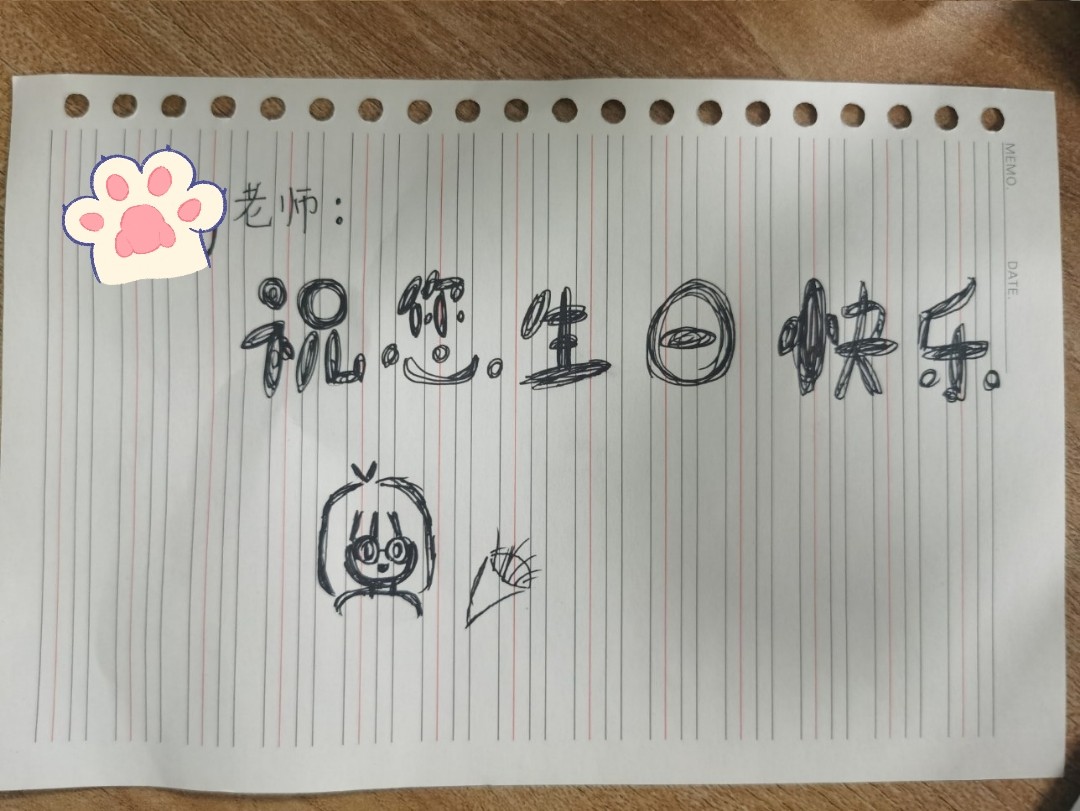 老师：
祝您生日快乐
MEMO.
DATE.